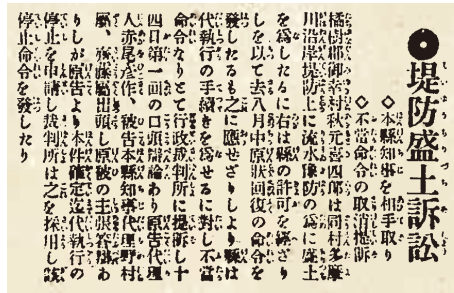 ●堤防盛土訴訟
◇本縣知事を相手取り
◇不當命令の取消提訴
橘樹郡御幸村秋元喜四郎は同村多摩
川沿岸堤防上に流水豫防の爲に盛土
を爲したるに右は縣の許可を經ざり
しを以て去八月中原狀回復の命令を
發したるも之に應せざりしより縣は
代執行の手續きを爲せるに對し不當
命令なりとて行政裁判所に提訴し十
四日第一回の口頭辯論あり原告代理
人赤尾彦作、被告本縣知事代理野村
屬、齋藤屬出頭し原被の主張答辯あ
りしが原告より本件確定迄代執行の
停止を申請し裁判所は之を採用し該
停止命令を發したり